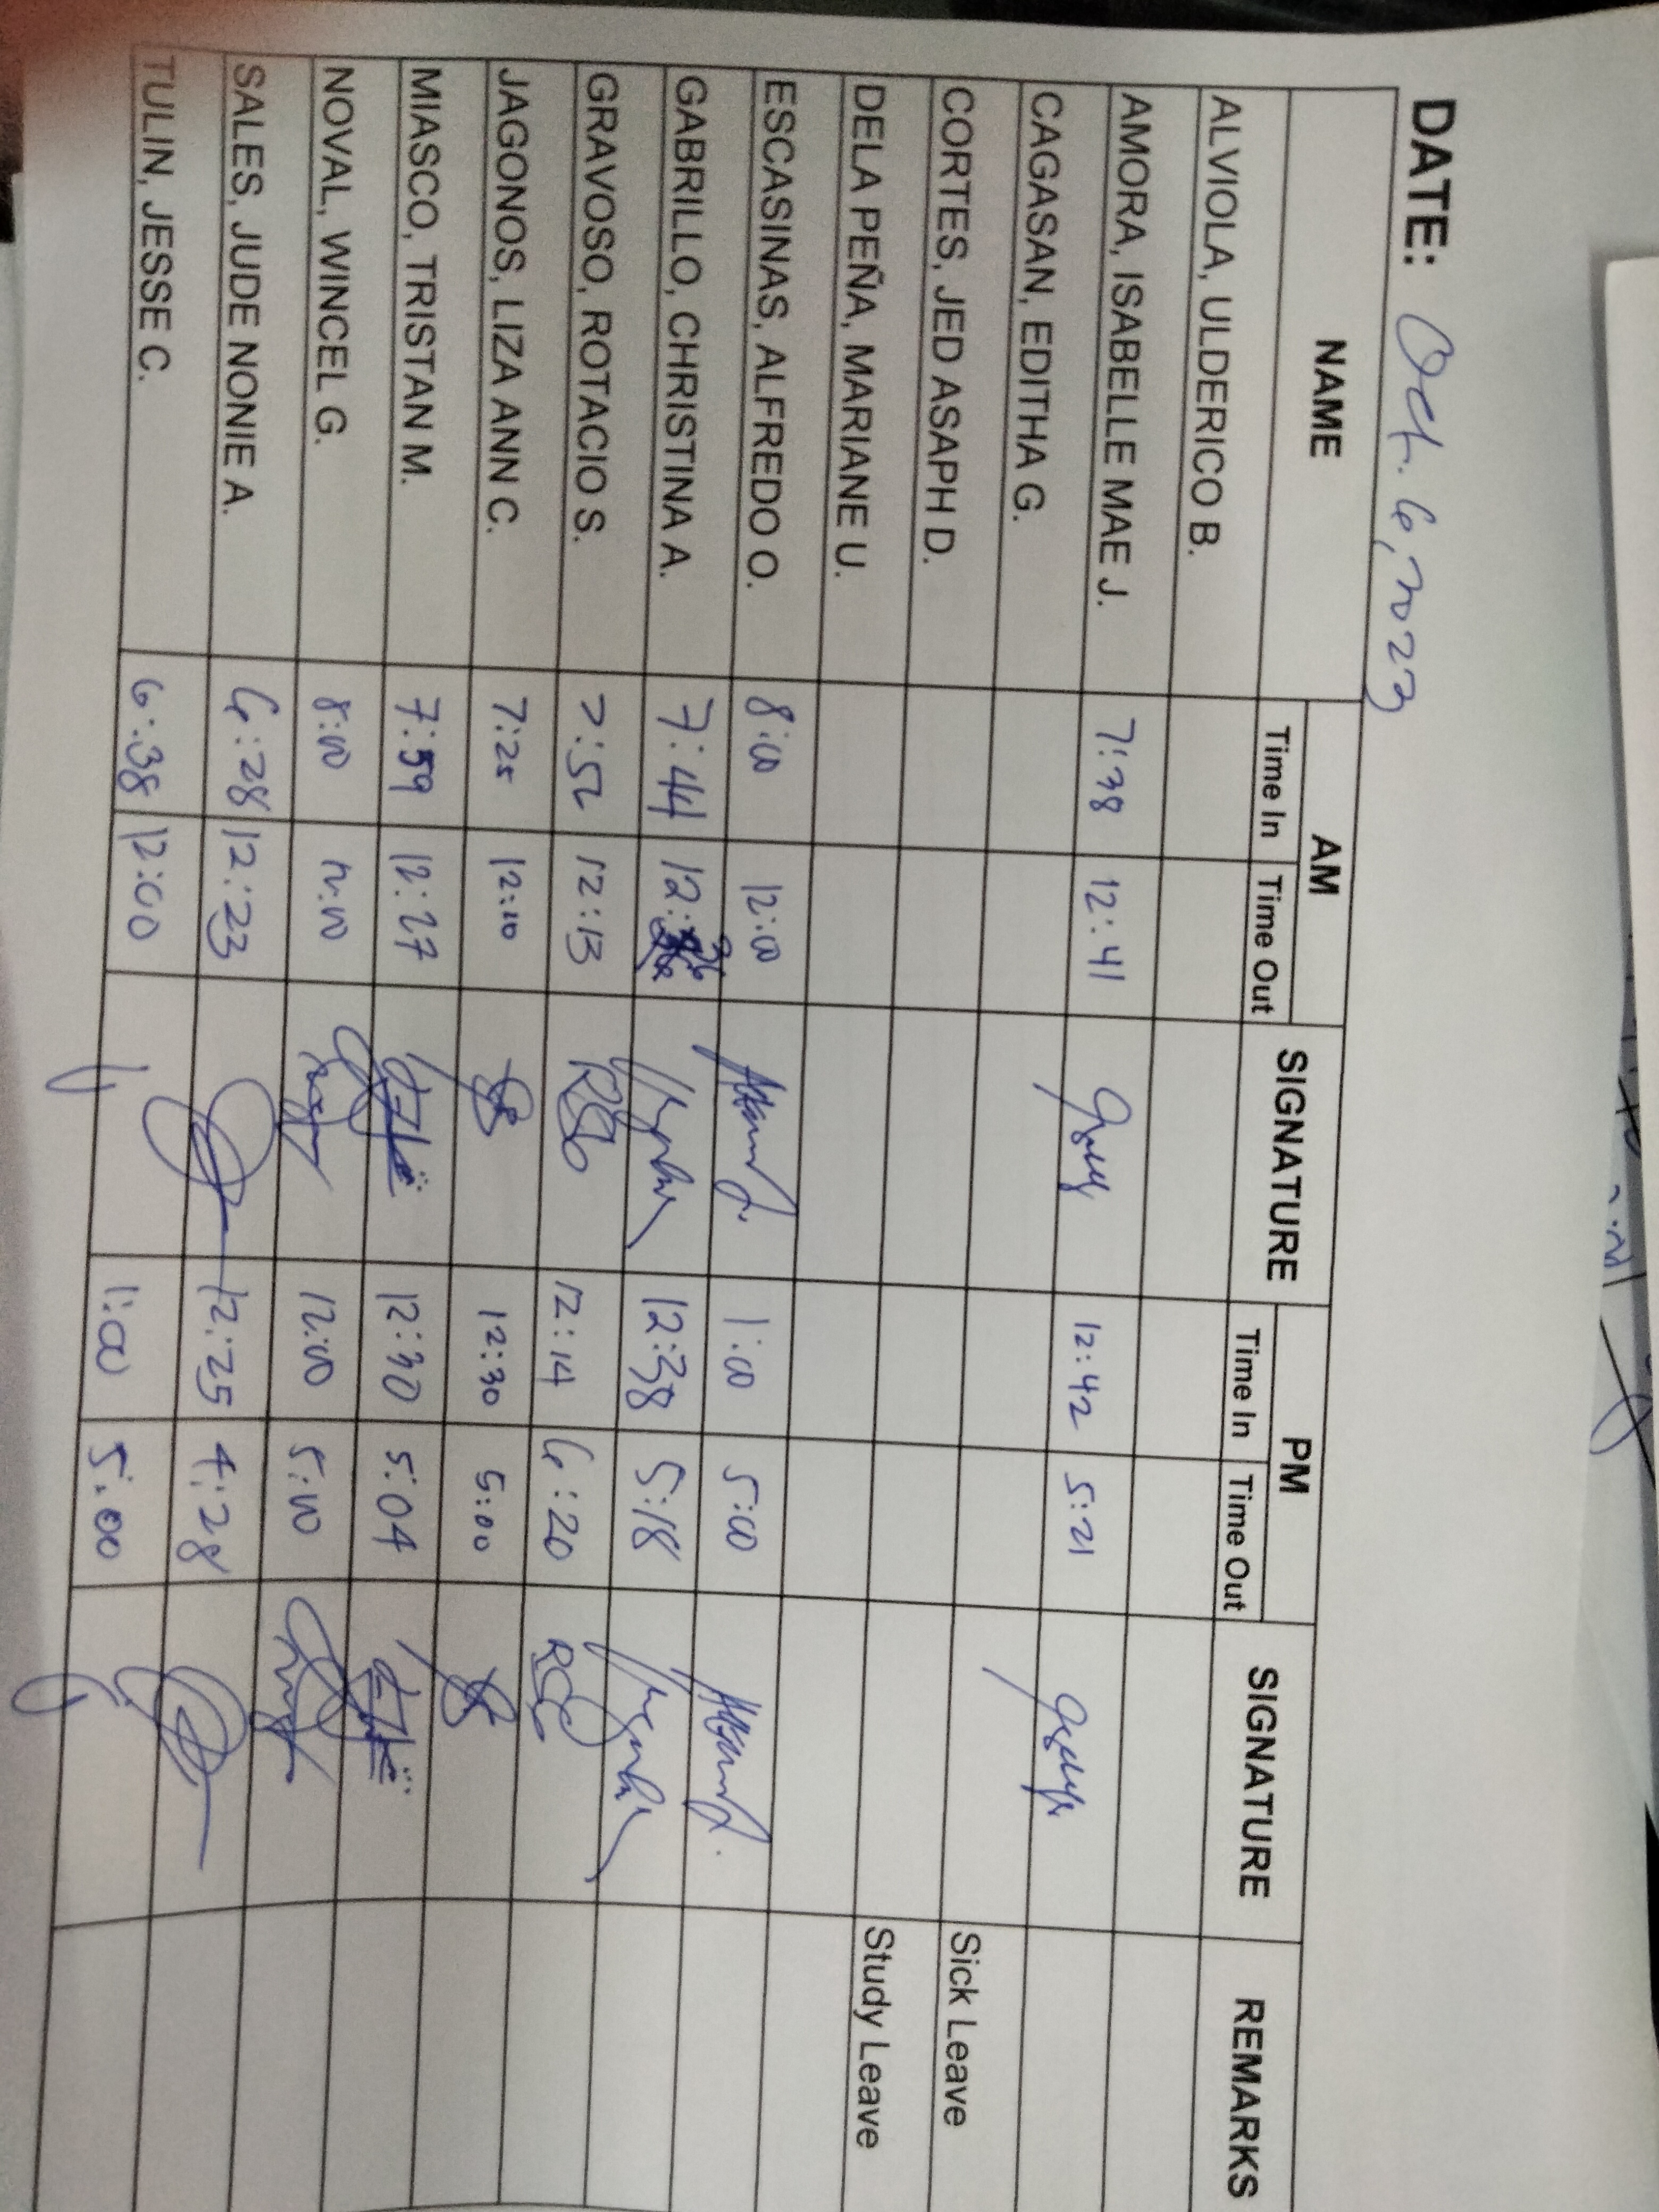 DATE: Oct. 6, 2023
NAME AM SIGNATURE PM SIGNATURE REMARKS
Time In Time Out Time In Time Out
ALVIOLA, ULDERICO B.
AMORA, ISABELLE MAE J. 7:38 12:41 12:42 5:21
CAGASAN, EDITHA G.
CORTES, JED ASAPH D. Sick Leave
DELA PEÑA, MARIANE U. Study Leave
ESCASINAS, ALFREDO O. 8:00 12:00 1:00 5:00
GABRILLO, CHRISTINA A. 7:44 12:36 12:38 5:18
GRAVOSO, ROTACIO S. 7:52 12:13 RSG 12:14 6:20 RSG
JAGONOS, LIZA ANN C. 7:25 12:10 12:30 5:00
MIASCO, TRISTAN M. 7:59 12:27 12:30 5:04
NOVAL, WINCEL G. 8:00 12:00 12:00 5:00
SALES, JUDE NONIE A. 6:28 12:23 12:25 4:28
TULIN, JESSE C. 6:38 12:00 1:00 5:00